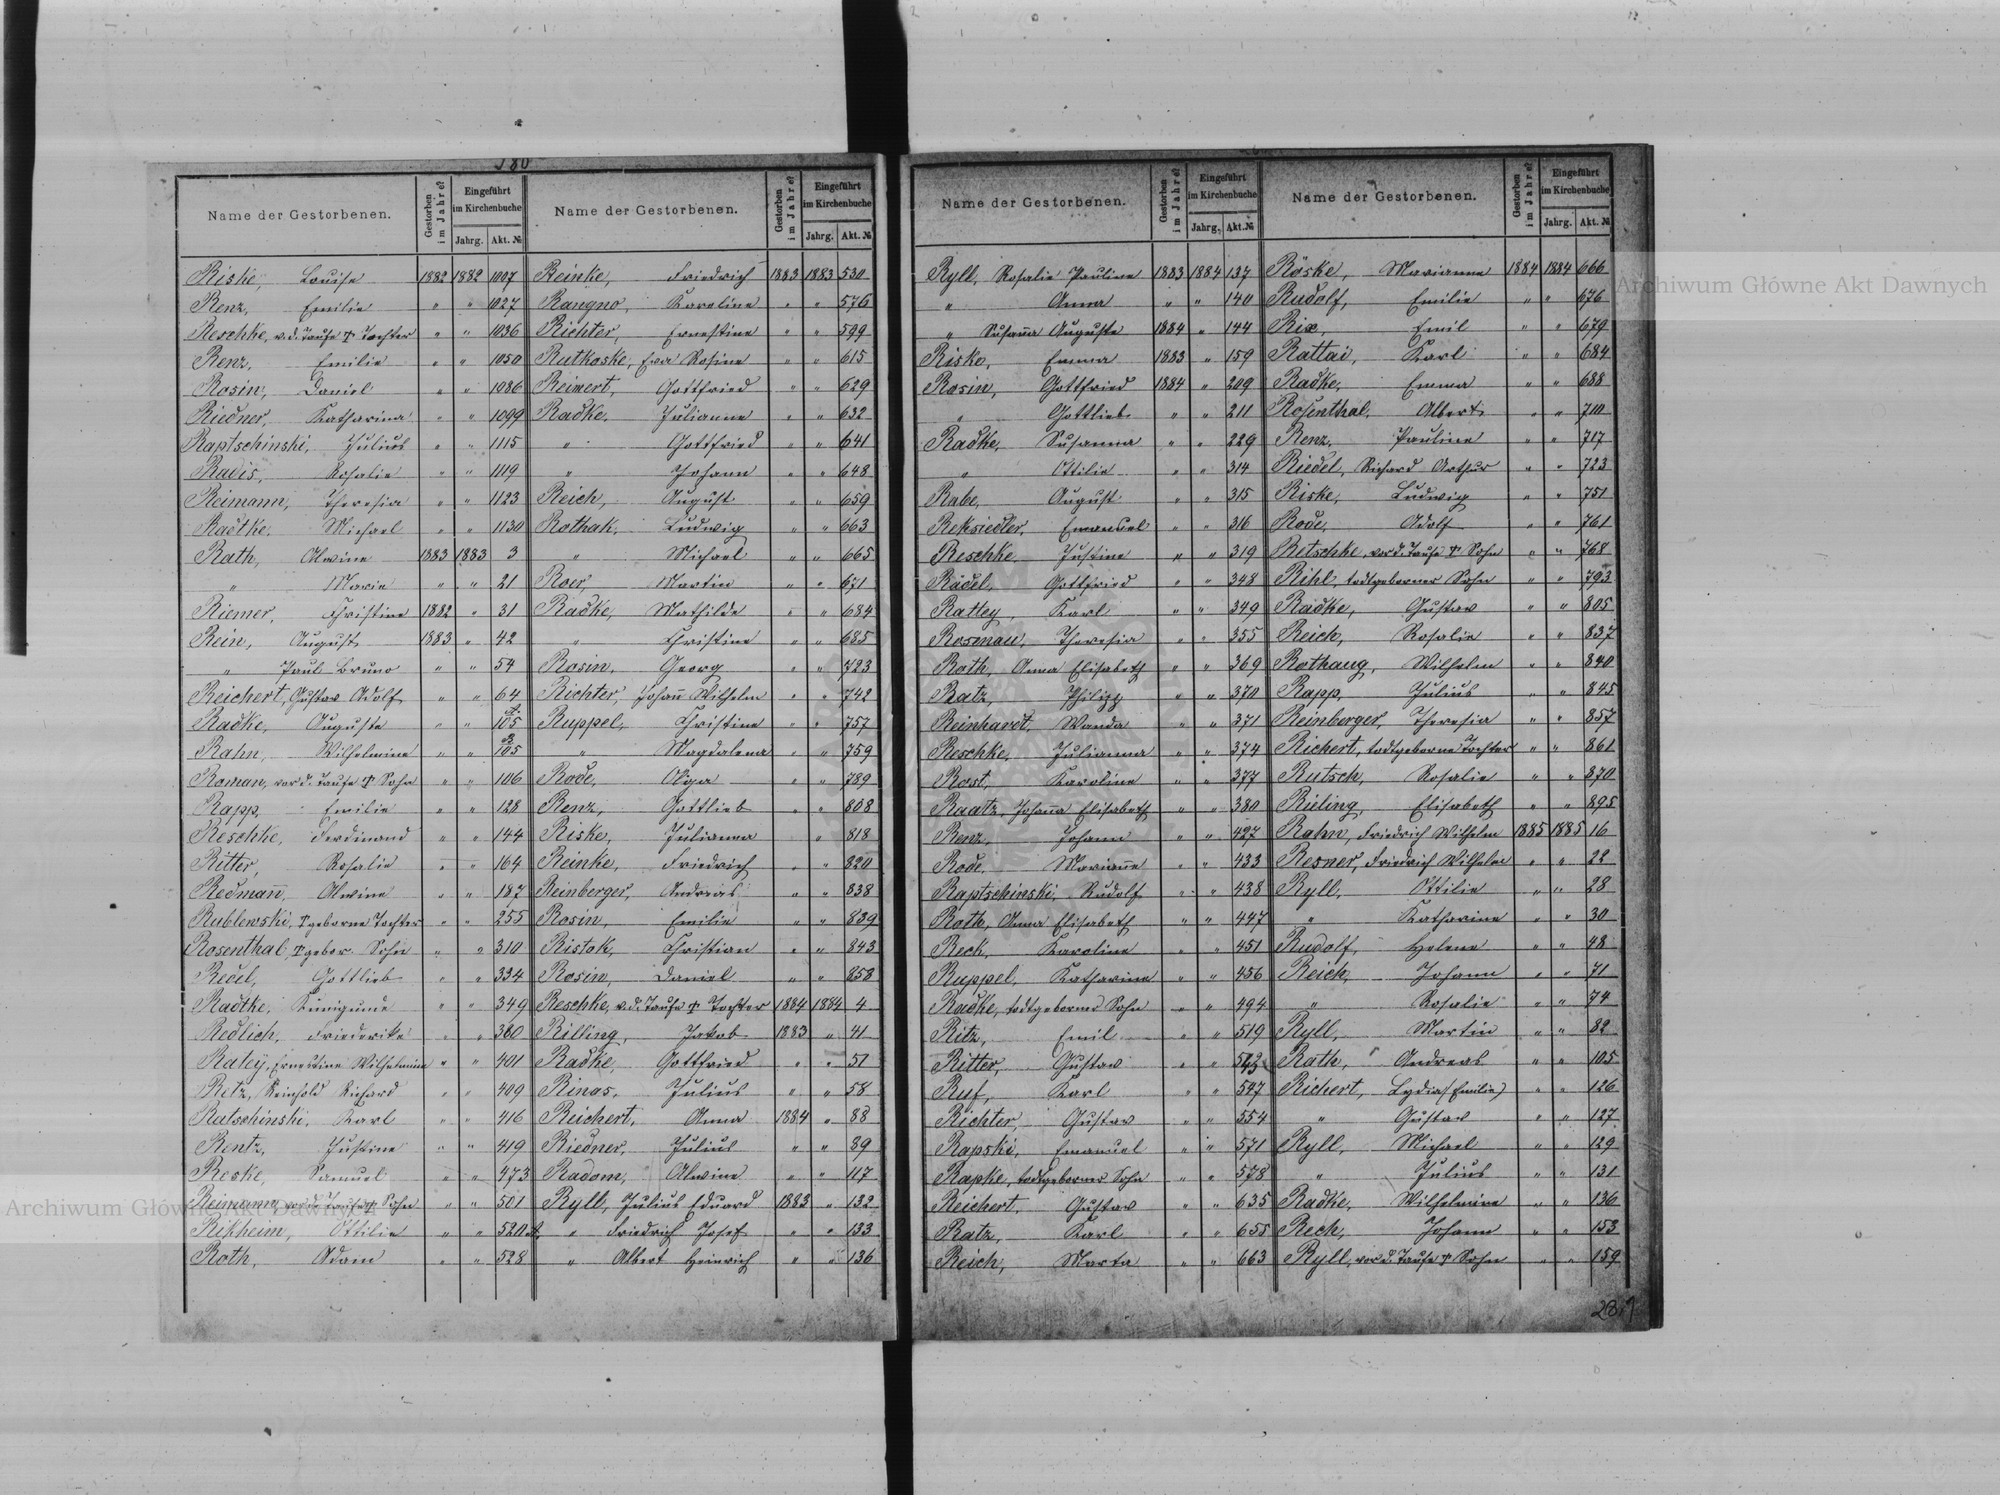 280
Name der Gestorbenen. Gestorben im Jahre? Eingeführt im Kirchenbuche Jahrg. Akt. №
Riske, Louise 1882 1882 1007
Renz, Emilie " " 1027
Reschke, v. d. Taufe † Tochter " " 1036
Renz, Emilie " " 1050
Rosin, Daniel " " 1086
Riedner, Katharina " " 1099
Raptschinski, Julius " " 1115
Radis, Rosalie " " 1119
Reimann, Theresia " " 1123
Radtke, Michael " " 1130
Rath, Alwine 1883 1883 3
" Marie " " 21
Riemer, Christine 1882 " 31
Rein, August 1883 " 42
" Paul Bruno " " 54
Reichert, Gustav Adolf " " 64
Radke, Auguste " " 105
Rahn, Wilhelmine " " 105
Roman, vor d. Taufe † Sohn " " 106
Rapp, Emilie " " 128
Reschke, Ferdinand " " 144
Ritter, Rosalie " " 164
Redman̄, Alwine " " 187
Rublewski, †geborne Tochter " " 255
Rosenthal, †gebor. Sohn " " 310
Redel, Gottlieb " " 334
Radtke, Kunigunde " " 349
Redlich, Friederike " " 360
Ratey, Ernestine Wilhelmine " " 401
Retz, Reinhold Richard " " 409
Ratschinski, Karl " " 416
Rentz, Justine " " 419
Reske, Samuel " " 473
Reimann, vor d. Taufe † Sohn " " 501
Rikheim, Ottilie " " 520
Roth, Adam " " 528
Name der Gestorbenen. Gestorben im Jahre? Eingeführt im Kirchenbuche Jahrg. Akt. №
Reinke, Friedrich 1883 1883 530
Rangno, Karoline " " 576
Richter, Ernestine " " 599
Rutkoske, Eva Rosine " " 615
Reimert, Gottfried " " 629
Radke, Julianne " " 632
" Gottfried " " 641
" Johann " " 648
Reich, August " " 659
Rothak, Ludwig " " 663
" Michael " " 665
Roer, Martin " " 671
Radke, Mathilde " " 684
" Christine " " 685
Rosin, Georg " " 723
Richter, Johan̄ Wilhelm " " 742
Ruppel, Christine " " 757
" Magdalena " " 759
Rode, Olga " " 789
Renz, Gottlieb " " 808
Riske, Julianna " 818
Reinke, Friedrich " " 820
Reinberger, Andreas " " 838
Rosin, Emilie " " 839
Ristok, Christian " " 843
Rosin, Daniel " " 858
Reschke, v. d. Taufe † Tochter 1884 1884 4
Rilling, Jakob 1883 " 41
Radke, Gottfried " " 51
Rinas, Julius " " 58
Reichert, Anna 1884 " 88
Riedner, Julius " " 89
Radom, Alwine " " 117
Ryll, Julius Eduard 1883 " 132
" Friedrich Josef " " 133
" Albert Heinrich " " 136
Name der Gestorbenen. Gestorben im Jahre? Eingeführt im Kirchenbuche Jahrg. Akt. №
Ryll, Rosalie Pauline 1883 1884 137
" Anna " " 140
" Susan̄a Auguste 1884 " 144
Risko, Emma 1883 " 159
Rosin, Gottfried 1884 " 209
" Gottlieb " " 211
Radke, Susanna " " 229
" Ottilie " " 314
Rabe, August " " 315
Reksiedler, Emanuel " " 316
Reschke, Justine " " 319
Radel, Gottfried " " 348
Ratley, Karl " " 349
Rosmau, Theresia " " 355
Roth, Anna Elisabeth " " 369
Ratz, Philipp " " 370
Reinhardt, Wanda " " 371
Reschke, Julianna " " 374
Rost, Karoline " " 377
Raatz, Johan̄a Elisabeth " " 380
Renz, Johann " " 427
Rode, Marian̄e " " 433
Raptschinski, Rudolf " " 438
Roth, Anna Elisabeth " " 447
Rech, Karoline " " 451
Ruppel, Katharina " " 456
Radke, todtgeborner Sohn " " 494
Ritz, Emil " " 519
Ritter, Gustav " "
Ruf, Karl " " 547
Richter, Gustav " " 554
Rapski, Emanuel " " 571
Rapke, todtgeborner Sohn " " 578
Reichert, Gustav " " 635
Ratz, Karl " " 655
Reich, Marta " " 663
Name der Gestorbenen. Gestorben im Jahre? Eingeführt im Kirchenbuche Jahrg. Akt. №
Röske, Marianne 1884 1884 666
Rudolf, Emilie " " 676
Rix, Emil " " 679
Rattai, Karl " " 684
Radke, Emma " " 688
Rosenthal, Albert " " 710
Renz, Pauline " " 717
Riedel, Richard Arthur " " 723
Riske, Ludwig " " 751
Rode, Adolf " " 761
Retschke, vor d. Taufe † Sohn " " 768
Rihl, todtgeborner Sohn " " 793
Radke, Gustav " " 805
Reich, Rosalie " " 837
Rothaug, Wilhelm " " 840
Rapp, Julius " " 845
Reinberger, Theresia " " 857
Richert, todtgeborne Tochter " " 861
Rutsch, Rosalie " " 870
Rieling, Elisabeth " " 895
Rahn, Friedrich Wilhelm 1885 1885 16
Resner, Friedrich Wilhelm " " 22
Ryll, Ottilie " " 28
" Katharine " " 30
Rudolf, Helene " " 48
Reich, Johann " " 71
" Rosalie " " 74
Ryll, Martin " " 82
Rath, Andreas " " 105
Richert, Lydia (Emilie) " " 126
" Gustav " " 127
Ryll, Michael " " 129
" Julius " " 131
Radke, Wilhelmine " " 136
Rech, Johann " " 153
Ryll, vor d. Taufe † Sohn " " 159
Archiwum Główne Akt Dawnych
Archiwum Główne Akt Dawnych